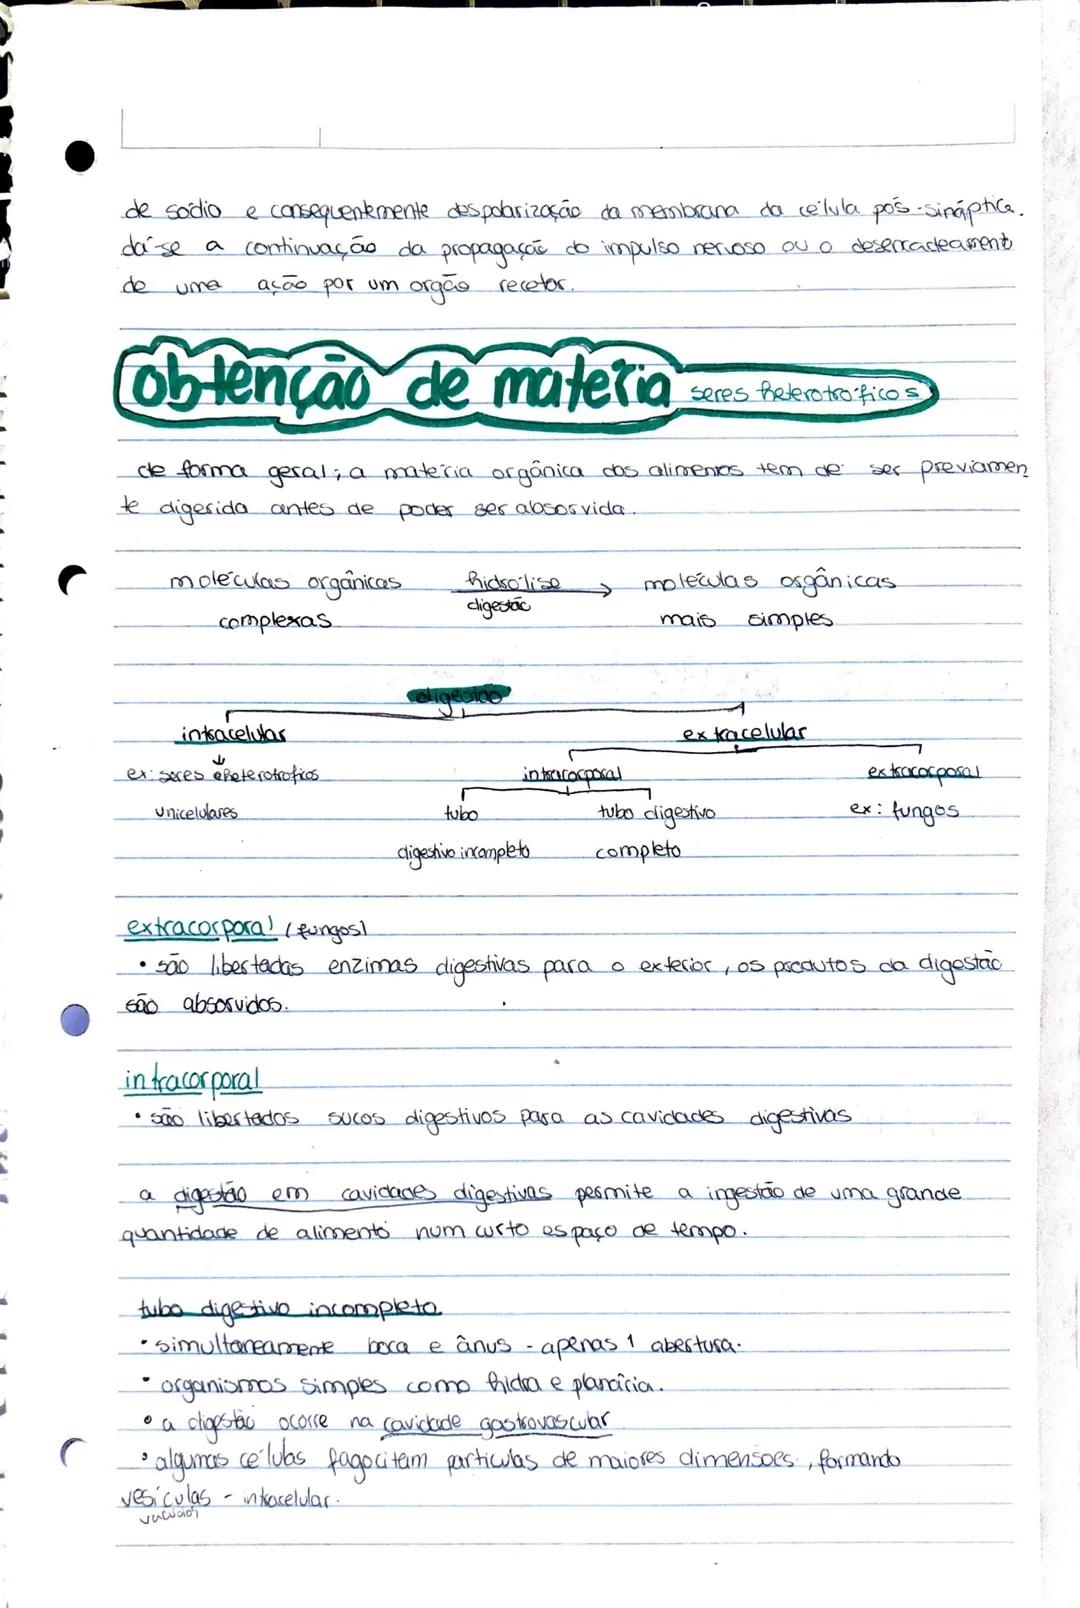 de sódio e consequentemente despolarização da membrana da célula pós-sináptica.
dá-se a continuação da propagação do impulso nervoso ou o desencadeament
de uma ação por um orgão recetor.
obtenção de matéria seres heterotróficos
de forma geral, a matéria orgânica dos alimentos tem de ser previamen
te digerida antes de poder ser absorvida.
moléculas orgânicas hidrólise moléculas orgânicas
digestão
complexas mais simples
digestão
intracelular extracelular
ex: seres heterotrofios intracorporal extracorporal
unicelulares tubo tubo digestivo ex: fungos
digestivo incompleto completo
extracorporal (fungos)
• são libertadas enzimas digestivas para o exterior, os produtos da digestão
são absorvidos.
intracorporal
• são libertados sucos digestivos para as cavidades digestivas
a digestão em cavidades digestivas permite a ingestão de uma grande
quantidade de alimento num curto espaço de tempo.
tubo digestivo incompleto
• simultaneamente boca e ânus - apenas 1 abertura.
• organismos simples como hidra e planária.
• a digestão ocorre na cavidade gastrovascular
• algumas células fagocitam particulas de maiores dimensões, formando
vesículas - intracelular.
vacúolos